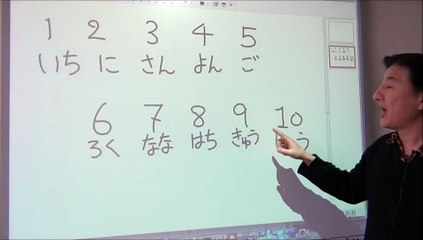 1 2 3 4 5
いち に さん よん ご
6 7 8 9 10
ろく なな はち きゅう う